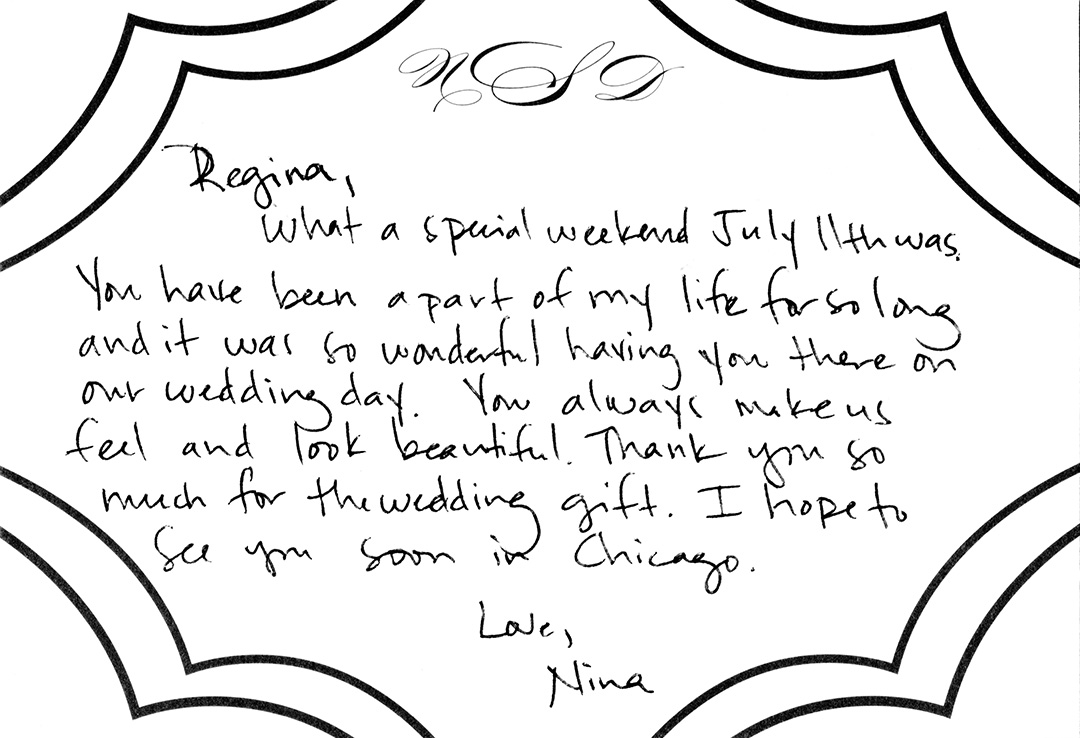 NSD
Regina,
What a special weekend July 11th was.
You have been a part of my life for so long
and it was so wonderful having you there on
our wedding day. You always make us
feel and look beautiful. Thank you so
much for the wedding gift. I hope to
see you soon in Chicago.
Love,
Nina